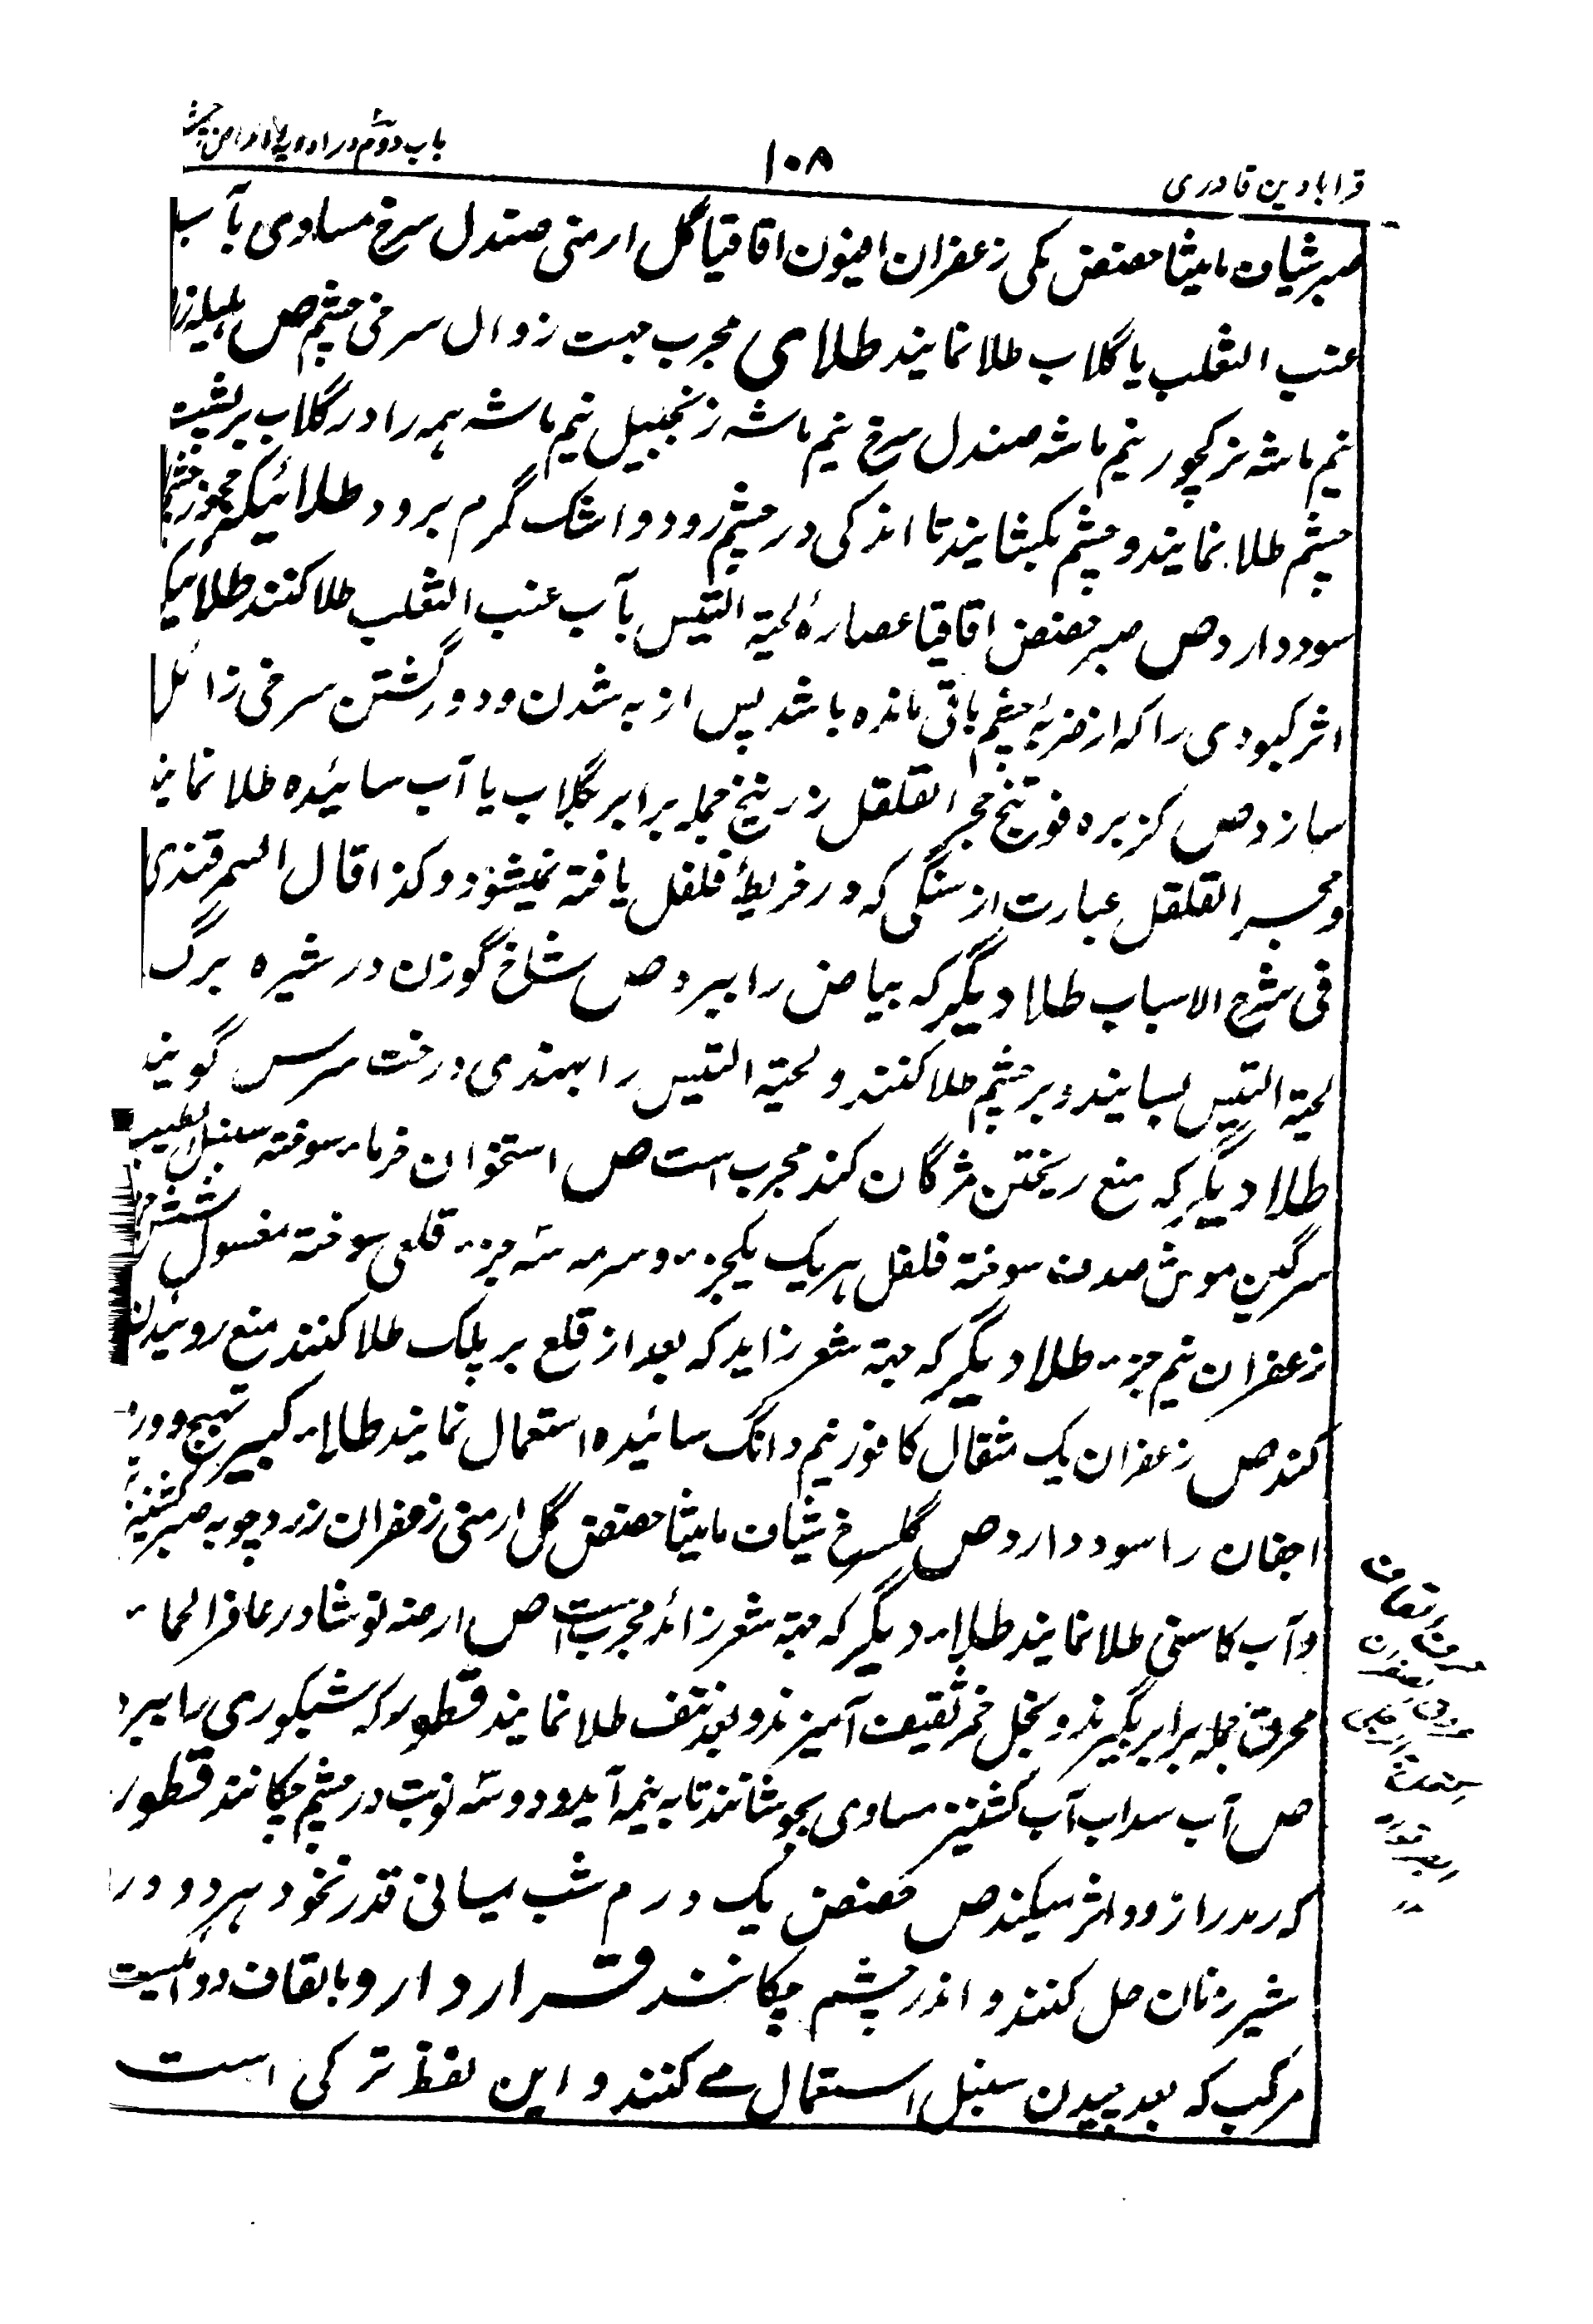 قرابادین قادری
۱۰۸
باب دوم در ادویه امراض چشم
صبر شیاف مامیثا حضض مکی زعفران افیون اقاقیا گل ارمنی صندل سرخ مساوی بآب
عنب الثعلب یا گلاب طلا نمایند طلای مجرب جهت زوال سرخی چشم ص هلیله زرد
نیم ماشه نرکچور نیم ماشه صندل سرخ نیم ماشه زنجبیل نیم ماشه همه را در گلاب بر پشت
چشم طلا نمایند و چشم بکشایند تا اندکی در چشم رود و اشک گرم برود طلائیکه
سود دارد ص صبر حضض اقاقیا عصارهٔ لحیة التیس بآب عنب الثعلب طلا کنند طلائیکه
اثر کبودی را که از ضربهٔ چشم باقی مانده باشد پس از به شدن و دور گشتن سرخی زائل
سازد ص کزبره فوتنج حجر القلقل زرنیخ جمله برابر بگلاب یا آب سائیده طلا نمایند
و حجر القلقل عبارت از سنگی که در خریطهٔ فلفل یافته میشود و کذا قال السمرقندی
فی شرح الاسباب طلا دیگر که بیاض را ببرد ص شاخ گوزن در شیره برگ
لحیة التیس بسایند و بر چشم طلا کنند و لحیة التیس را بهندی درخت سرس گویند
طلا دیگر که منع ریختن مژگان کند مجرب است ص استخوان خرما سوخته سنبل الطیب
سرگین موش صدف سوخته فلفل هریک یکجزء و سرمه سه جزء قلعی سوخته مغسول شش
زعفران نیم جزء طلا دیگر که جهة شعر زاید که بعد از قلع بر پلک طلا کنند منع روئیدن
کند ص زعفران یک مثقال کافور نیم دانگ سائیده استعمال نمایند طلاء کبیر تهیج و ورم
اجفان را سود دارد ص گلسرخ شیاف مامیثا حضض گل ارمنی زعفران زرد چوبه صبر
و آب کاسنی طلا نمایند طلاء دیگر که جهة شعر زائد مجرب است ص ارضه نوشادر حافر الحمار
محرق جمله برابر بگیرند و بخل خمر ثقیف آمیزند و بعد نتف طلا نمایند قطور که شبکوری را ببرد
ص آب سداب آب کشنیز مساوی بجوشانند تا به نیمه آید و دو سه نوبت در چشم چکانند قطور
که رمد را زود اثر میکند ص حضض یک درم شب یمانی قدر نخود هر دو در
شیر زنان حل کنند و اندر چشم چکانند قرار دارو بالقاف دوائیست
مرکب که بعد چیدن سنبل استعمال مے کنند و این لفظ ترکی است